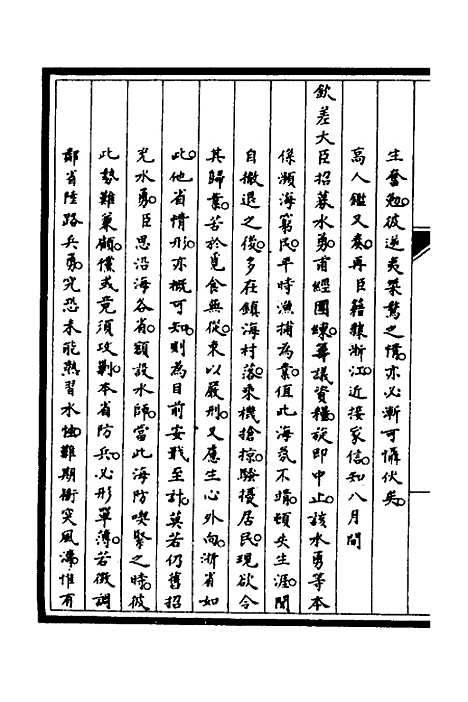 生奮勉。彼逆夷桀驁之情。亦必漸可懾伏矣。
高人鑑又奏。再臣籍隸浙江。近接家信。知八月間
欽差大臣招募水勇。甫經團練。籌議資糧。旋即中止。該水勇等本
係瀕海窮民。平時漁捕為業。值此海氛不靖。頓失生涯。聞
自撤退之後。多在鎮海村落。乘機搶掠。騷擾居民。現欲令
其歸業。苦於覓食無從。束以嚴刑。又應生心外向。浙省如
此。他省情形。亦概可知。則為目前安戢至計。莫若仍舊招
充水勇。臣思沿海各省。額設水師。當此海防喫緊之時。彼
此勢難兼顧。儻或竟須攻勦。本省防兵。必形單薄。若徵調
鄰省陸路兵勇。究恐未能熟習水性。難期衝突風濤。惟有